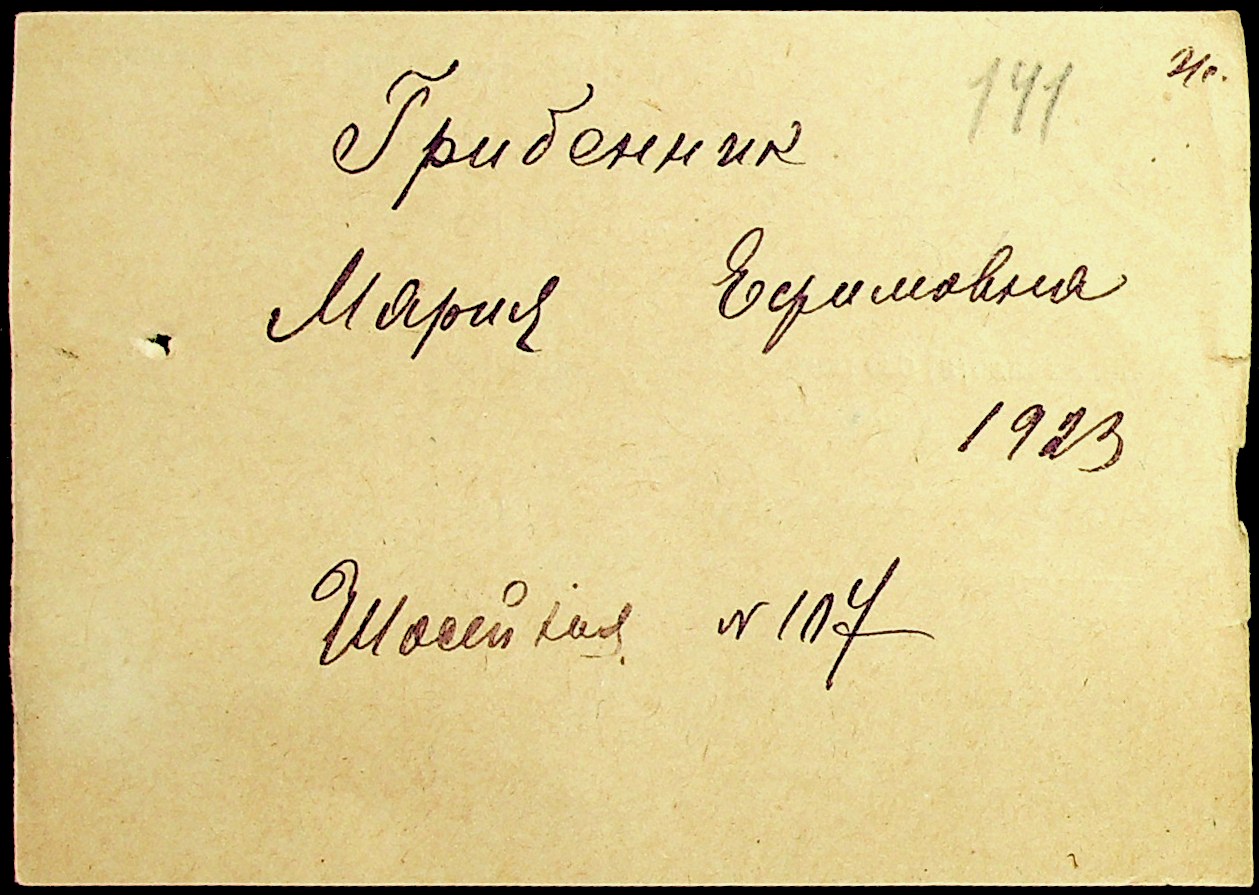 141
Грибенник
Мария Ефимовна
1923
Шоссейная № 107